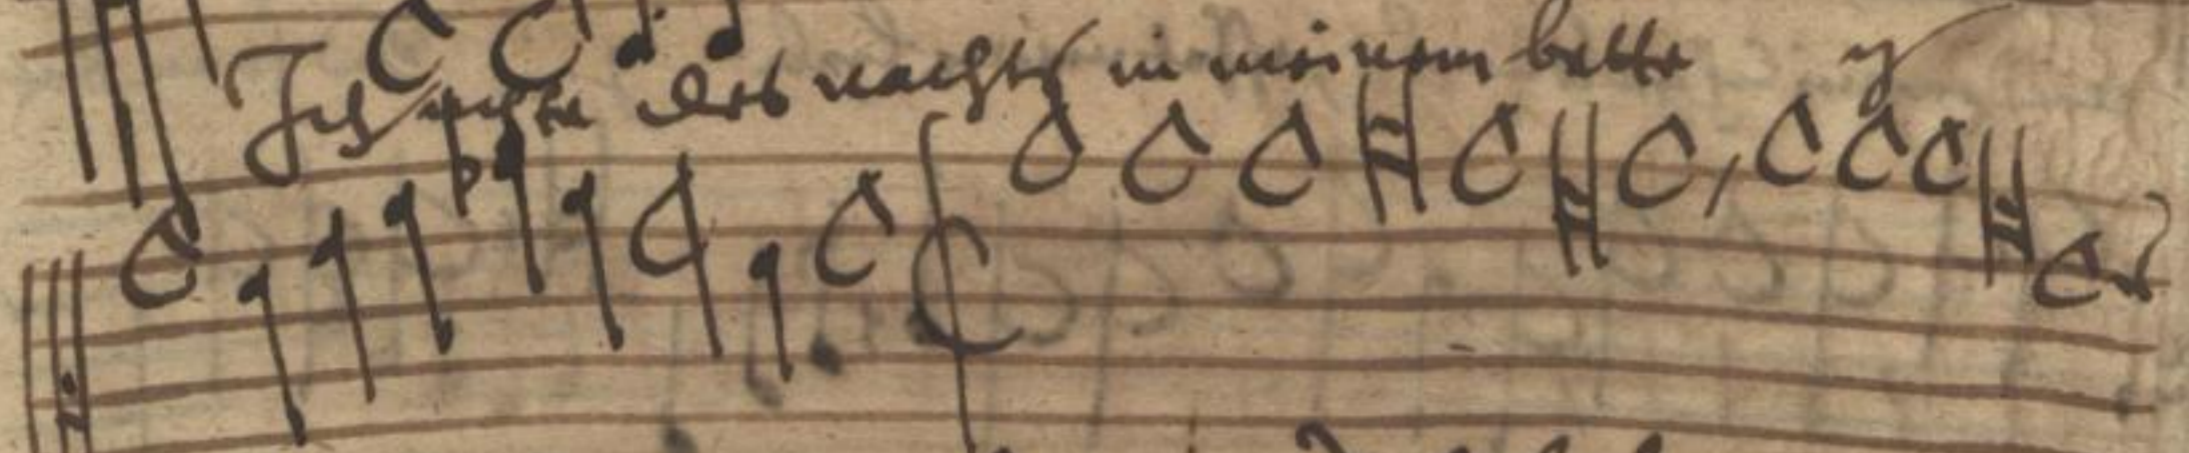 Ich suchte des nachts in meinem bette ij